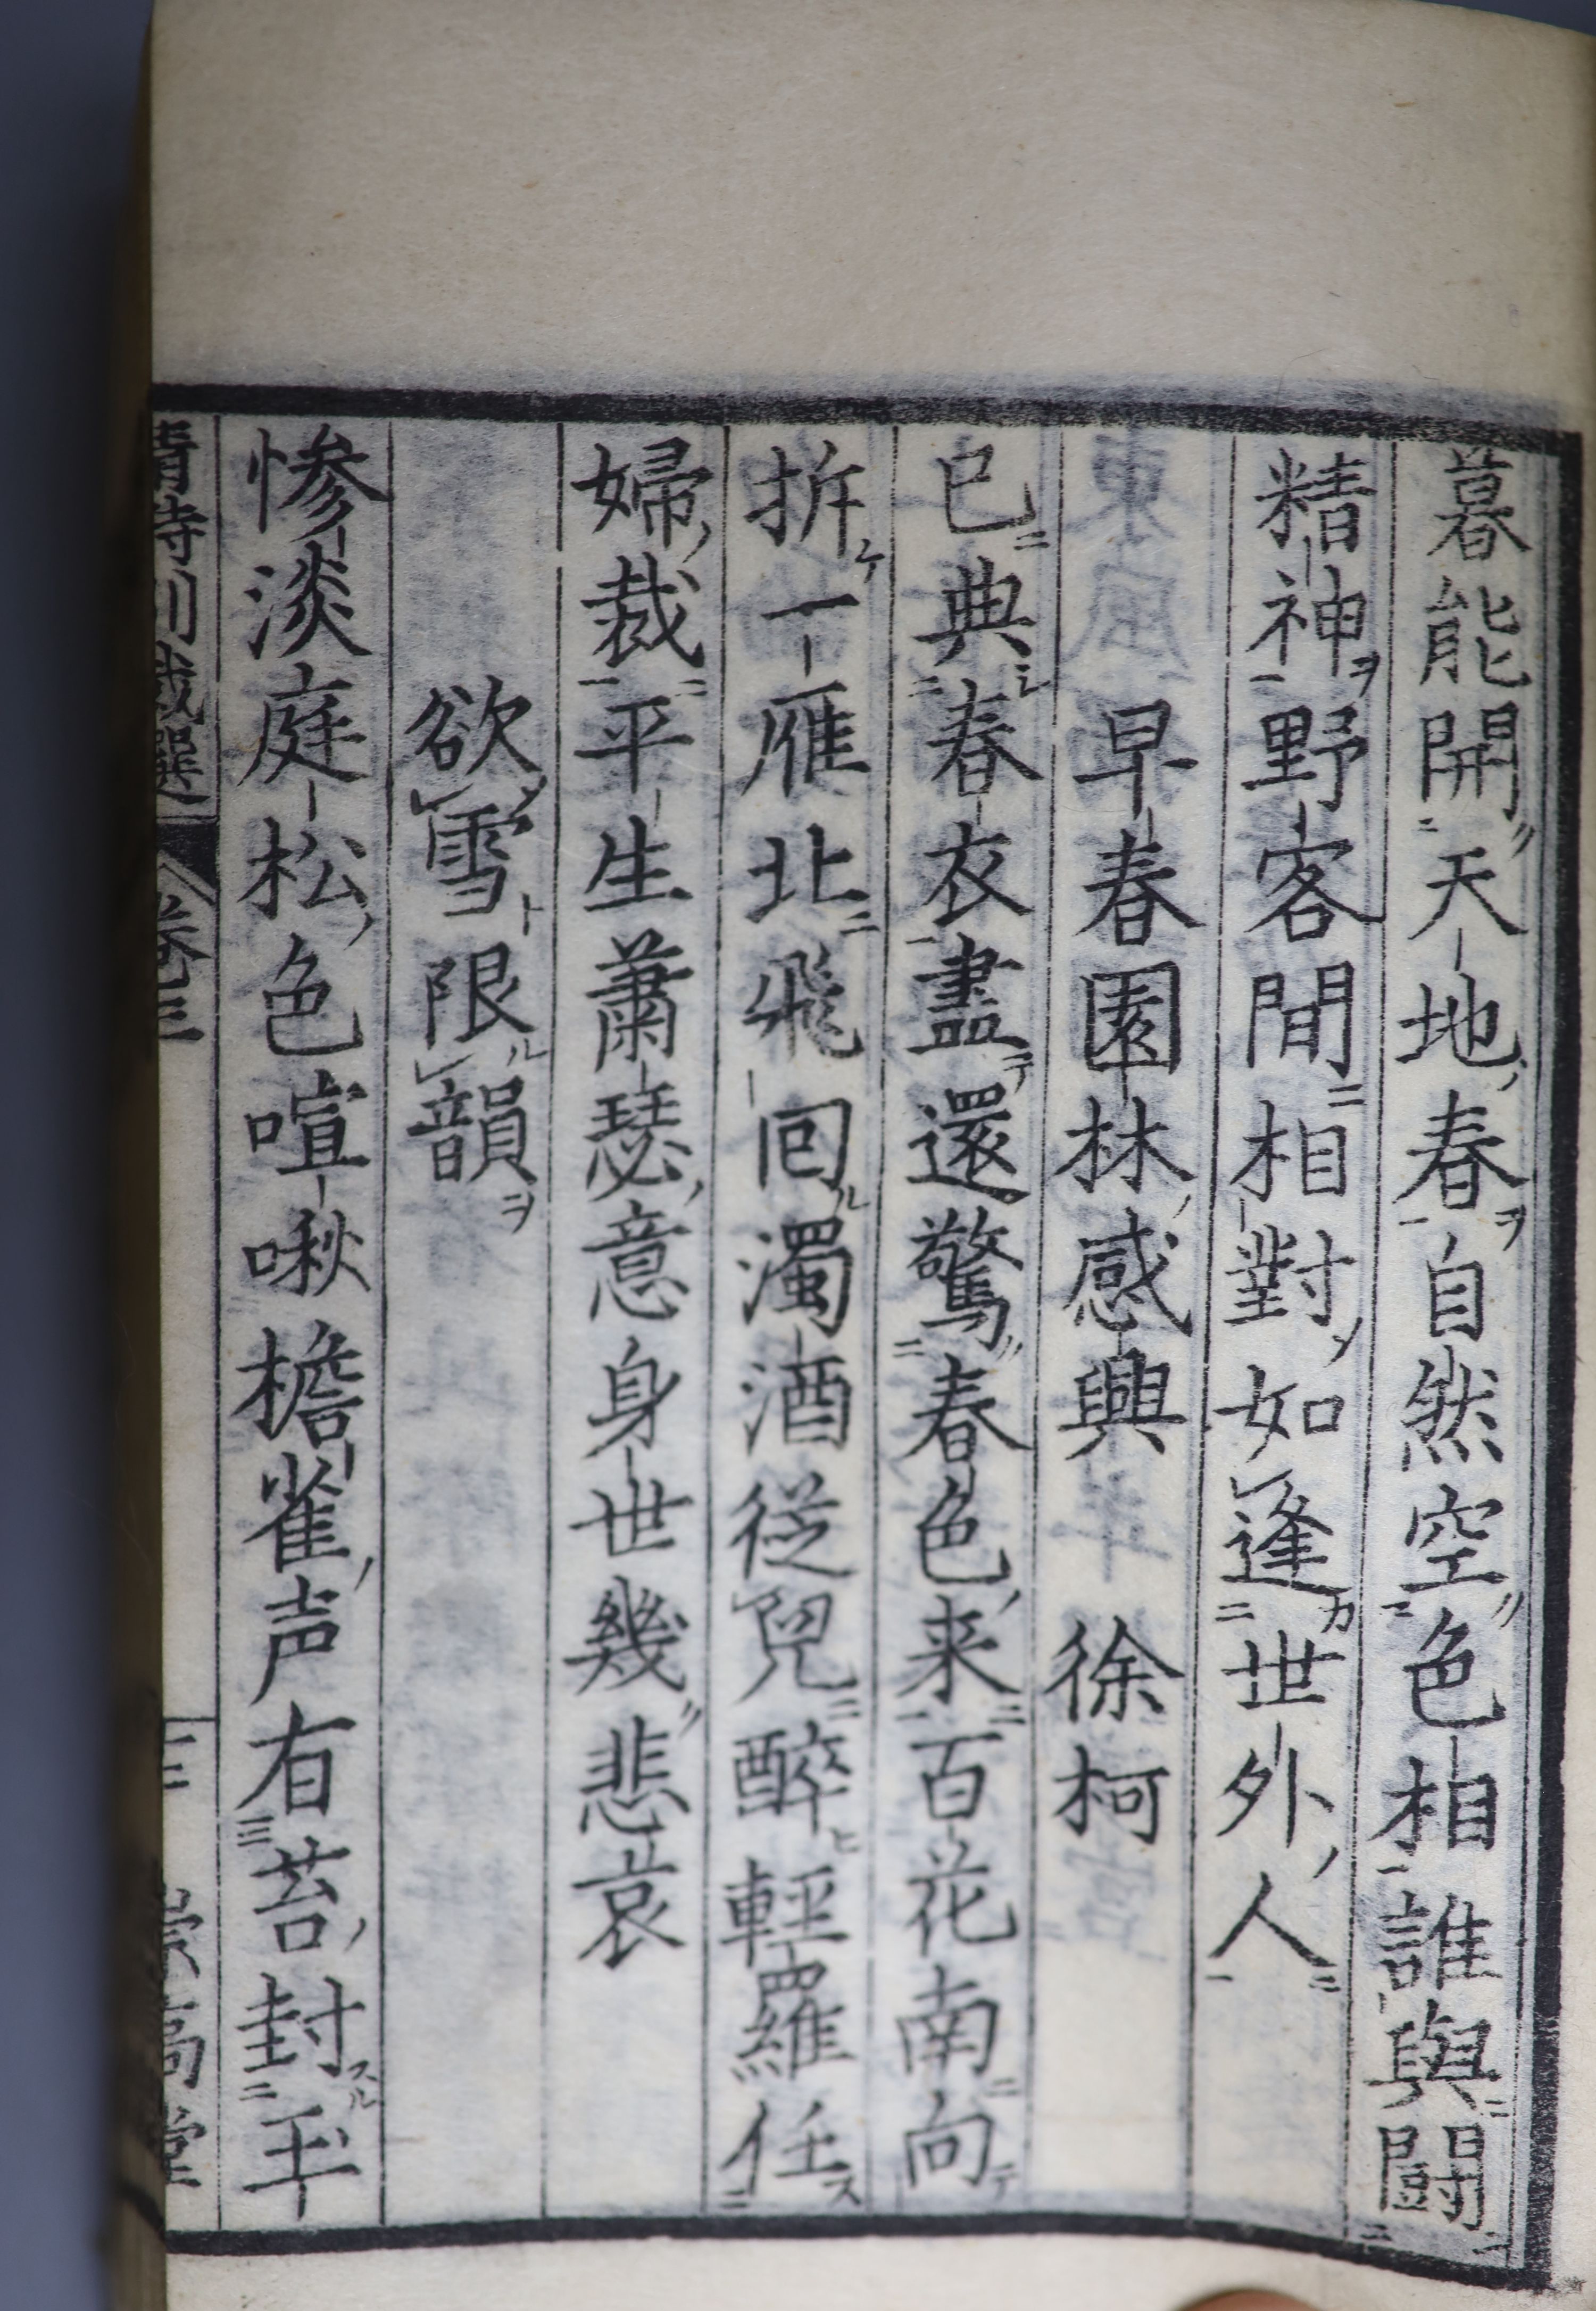 暮能開天地春自然空色相誰與闘
精神野客間相對如逢世外人
早春園林感興　徐柯
已典春衣盡還驚春色来百花南向
拆一雁北飛囘濁酒從兒醉輕羅任
婦裁平生蕭瑟意身世幾悲哀
欲雪限韻
惨淡庭松色喧啾檐雀声有苔封玉
清詩別裁選　卷三　二